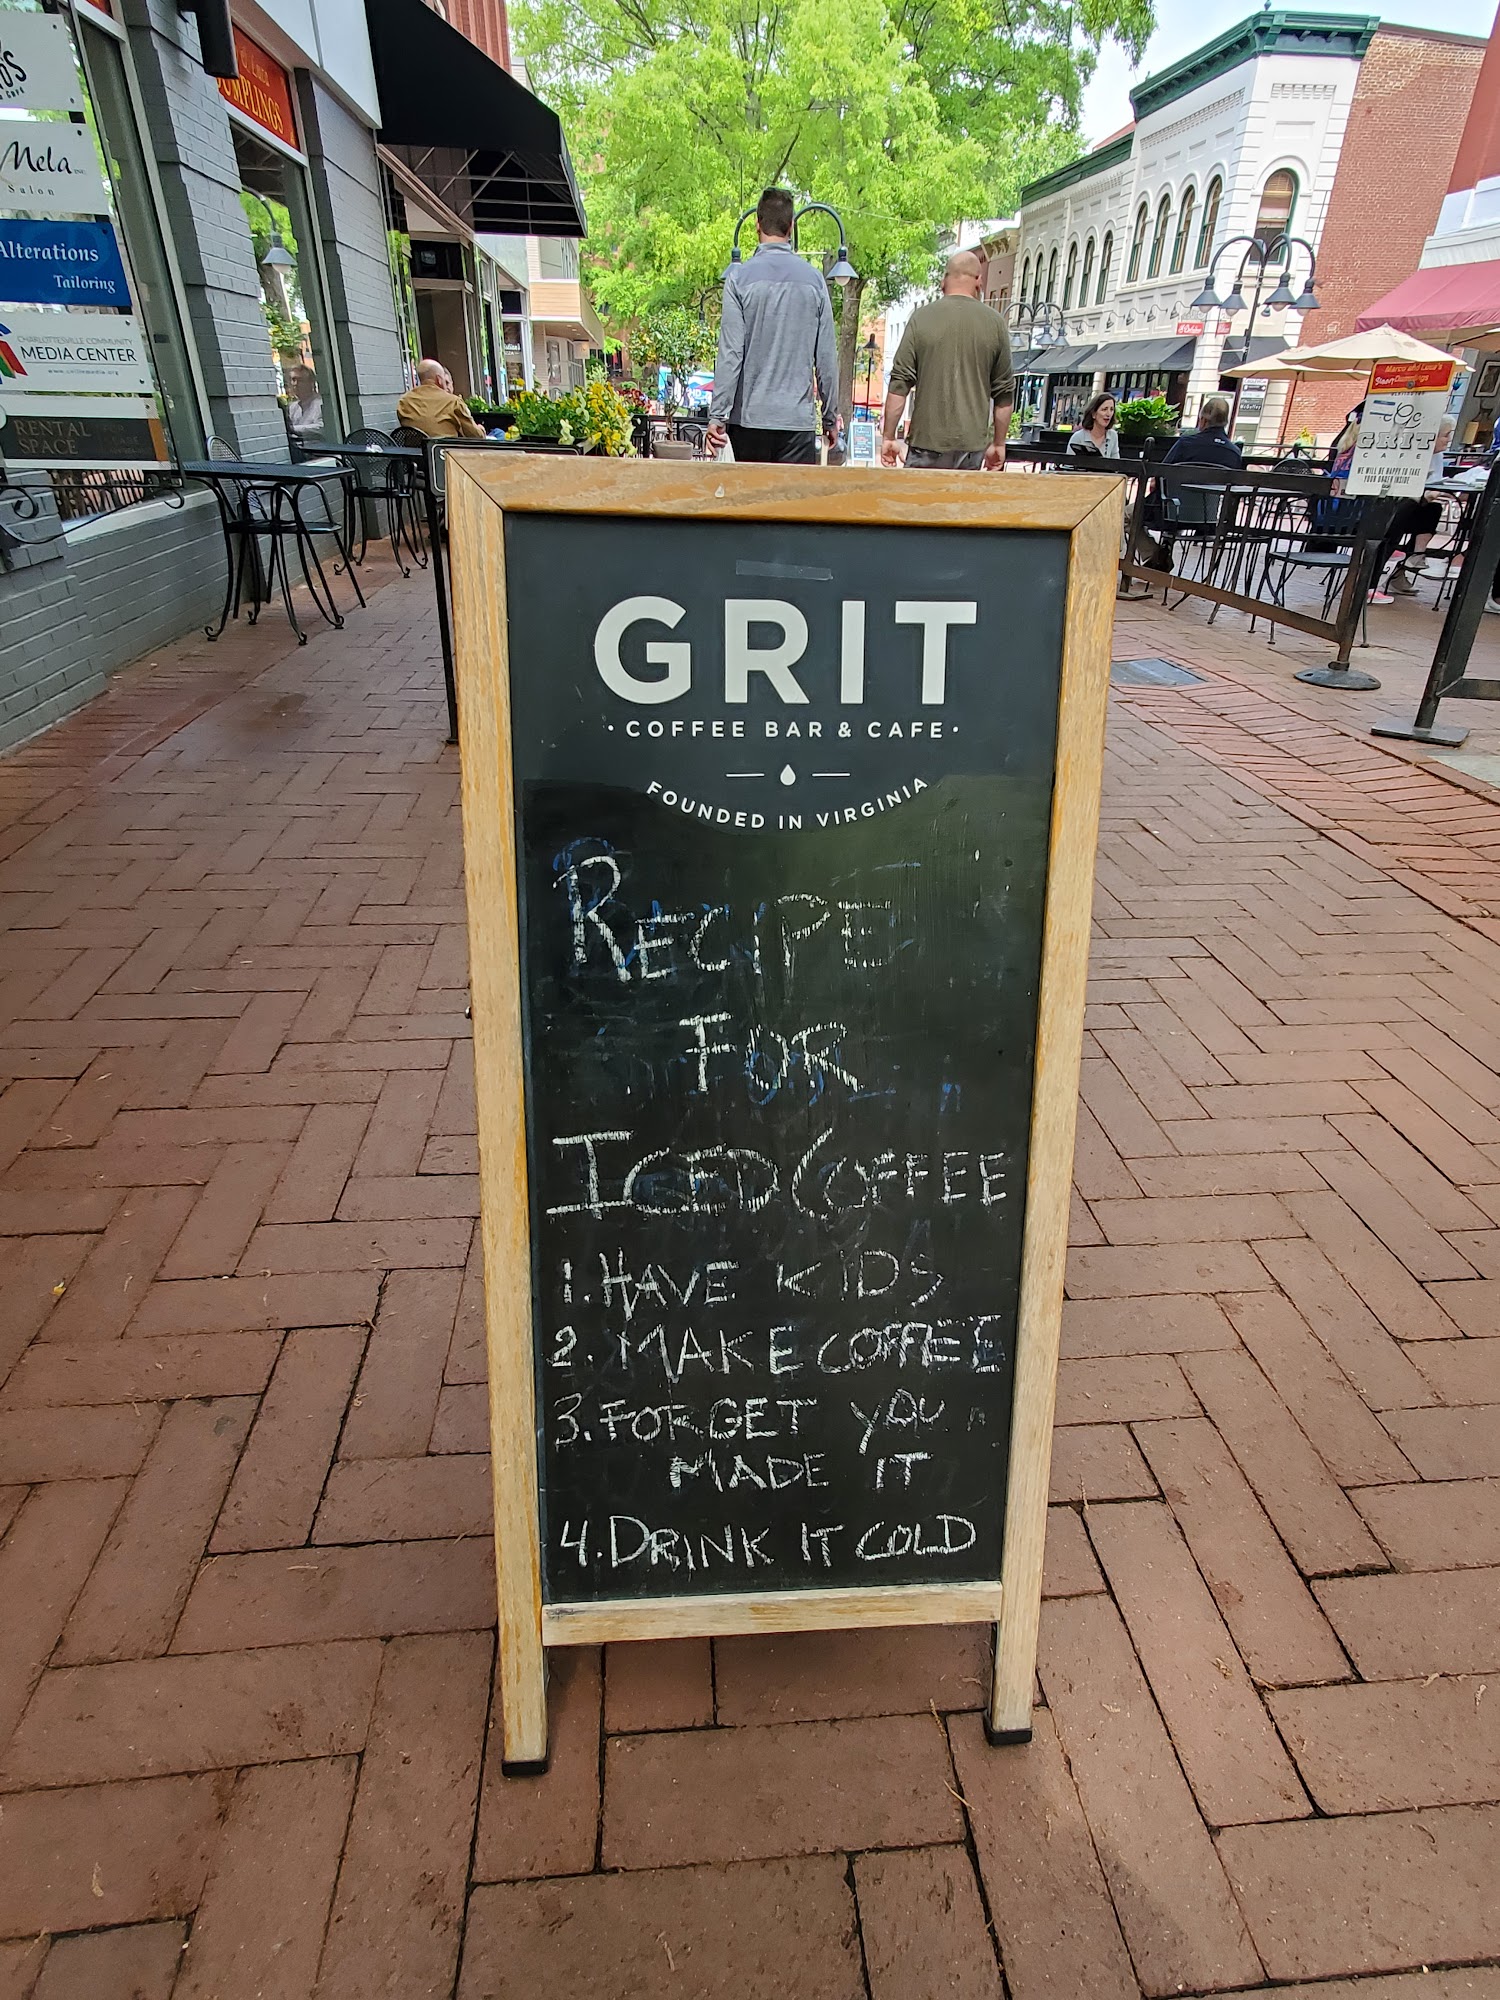 Mela
Salon
DUMPLINGS
Alterations
Tailoring
CHARLOTTESVILLE COMMUNITY
MEDIA CENTER
RENTAL
SPACE
Marco and Luca's
GRIT
CAFE
WE WILL BE HAPPY TO TAKE
YOUR ORDER INSIDE
GRIT
· COFFEE BAR & CAFE ·
FOUNDED IN VIRGINIA
RECIPE
FOR
ICED COFFEE
1. HAVE KIDS
2. MAKE COFFEE
3. FORGET YOU
MADE IT
4. DRINK IT COLD